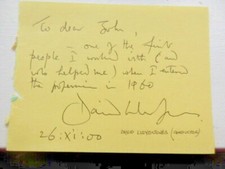 To dear John,
— one of the first
people I worked with (and
who helped me) when I entered
the profession in 1960
26·XI·00